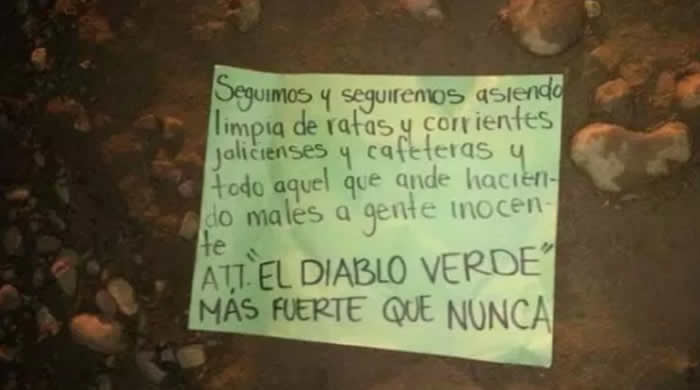 Seguimos y seguiremos asiendo
limpia de ratas y corrientes
jalicienses y cafeteras y
todo aquel que ande hacien-
do males a gente inocen-
te
ATT. "EL DIABLO VERDE"
MÁS FUERTE QUE NUNCA